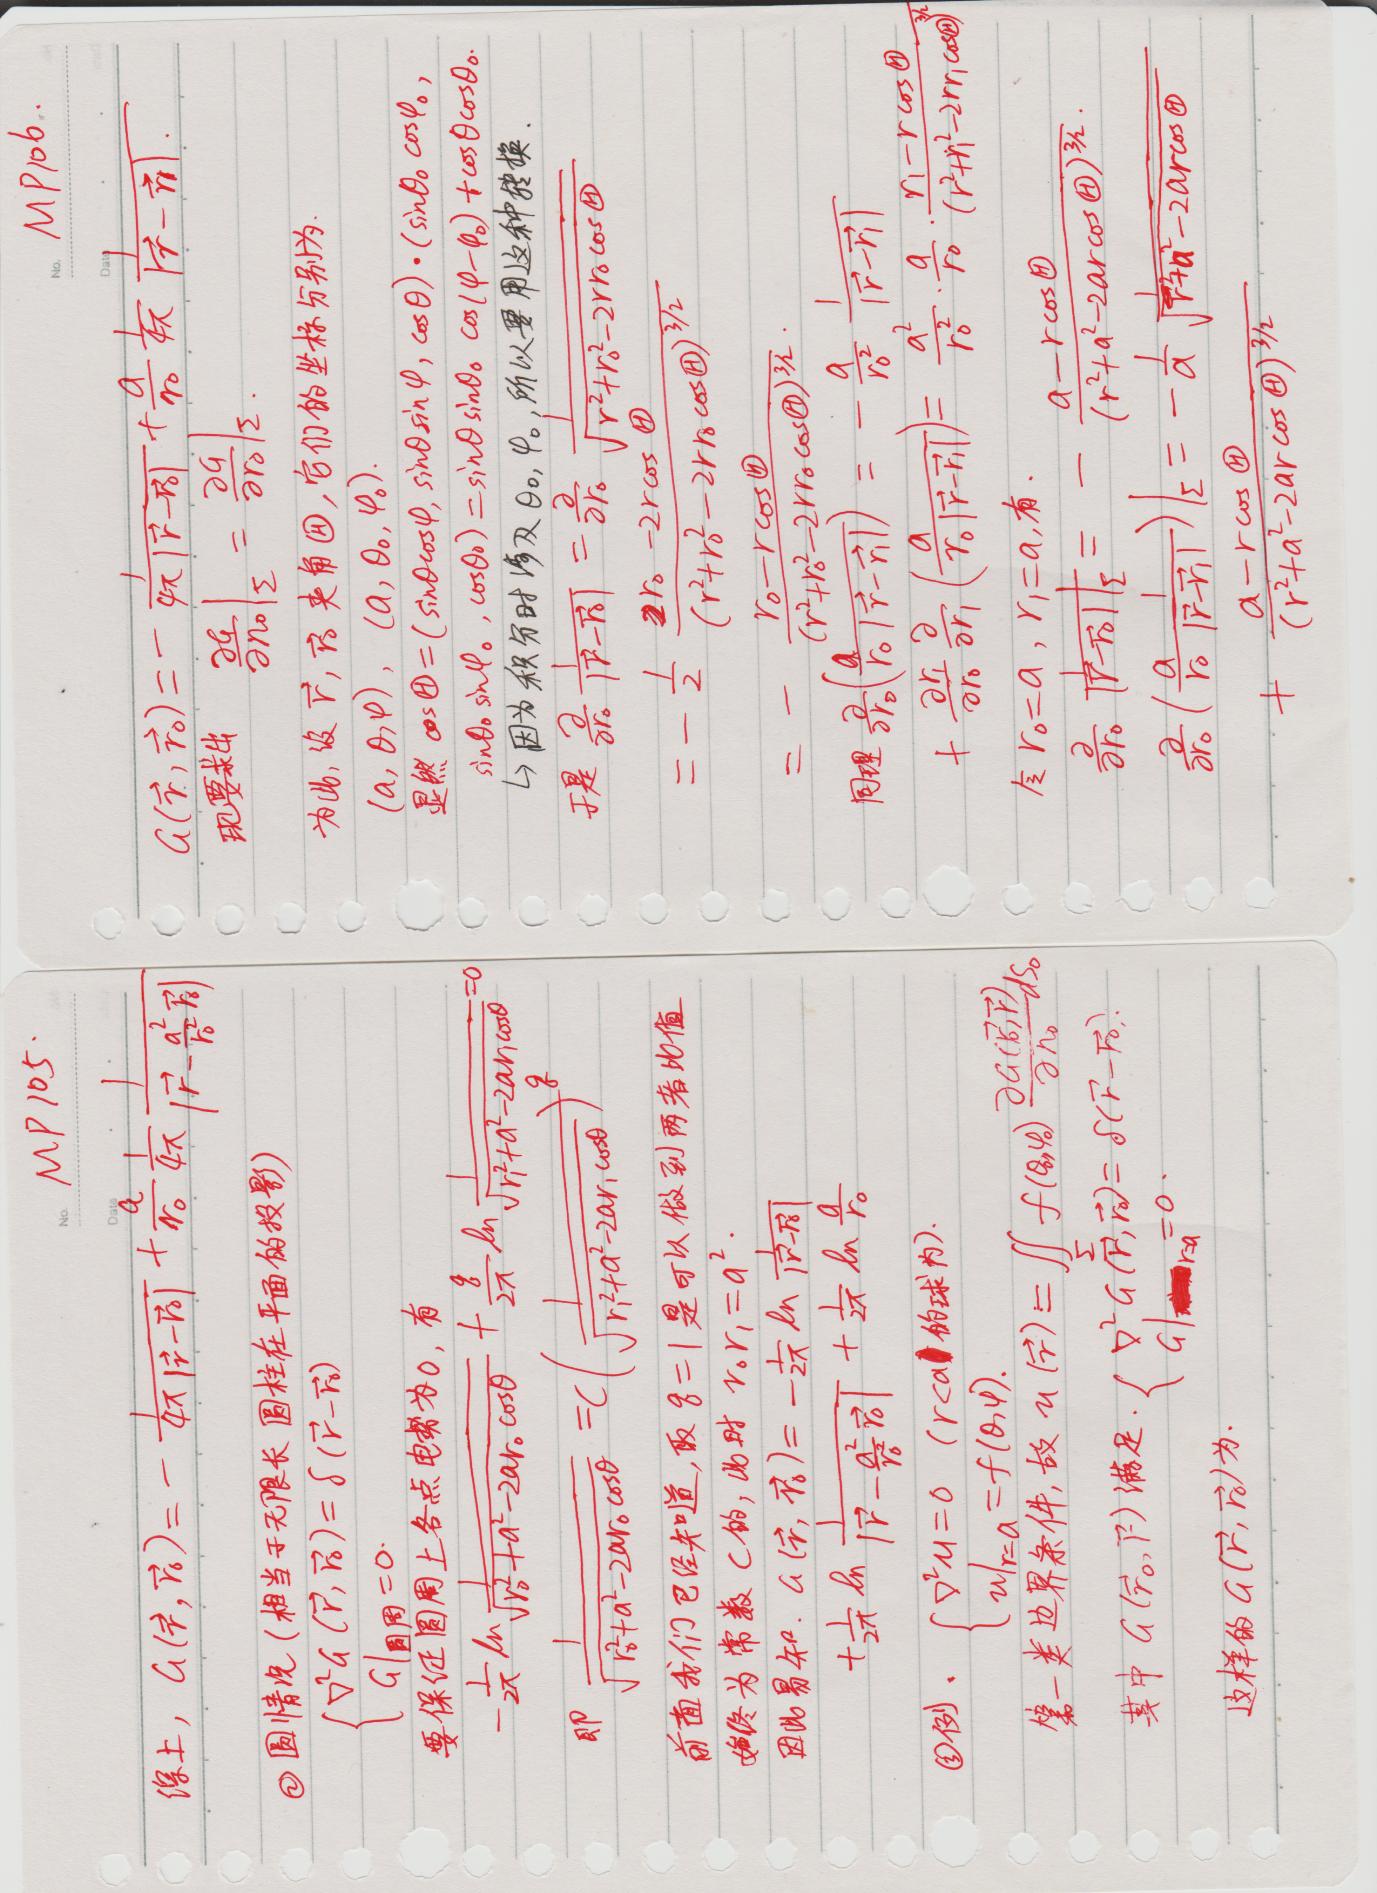 MP105.
No.
Date
综上, G(r⃗, r⃗₀) = - 1/(4π|r⃗-r⃗₀|) + a/r₀ 1/4π 1/|r⃗ - a²/r₀² r⃗₀|
② 圆情况 (相当于无限长 圆柱在平面的投影)
{ ∇²G (r⃗, r⃗₀) = δ (r⃗-r⃗₀)
G|圆周 = 0.
要保证圆周上各点电势为0, 有
- 1/2π ln 1/√(r₀²+a²-2ar₀cosθ) + q/2π ln 1/√(r₁²+a²-2ar₁cosθ) = 0
即 1/√(r₀²+a²-2ar₀cosθ) = C (1/√(r₁²+a²-2ar₁cosθ))^q
前面我们已经知道, 取 q=1 是可以做到两者比值
始终为常数 C 的, 此时 r₀r₁ = a².
因此易知. G(r⃗, r⃗₀) = - 1/2π ln 1/|r⃗-r⃗₀|
+ 1/2π ln 1/|r⃗ - a²/r₀² r⃗₀| + 1/2π ln a/r₀
③例. { ∇²u = 0 (r<a 的球内).
u|r=a = f(θ,φ).
第一类边界条件, 故 u(r⃗) = ∬_Σ f(θ₀,φ₀) ∂G(r⃗₀,r⃗)/∂n₀ dS₀
其中 G(r⃗₀, r⃗) 满足. { ∇²G(r⃗,r⃗₀) = δ(r⃗-r⃗₀).
G|r=a = 0.
这样的 G(r⃗, r⃗₀) 为.
MP106.
No.
Date
G(r⃗, r⃗₀) = - 1/(4π|r⃗-r⃗₀|) + a/r₀ 1/4π 1/|r⃗-r⃗₁|.
现要求出 ∂G/∂n₀|Σ = ∂G/∂r₀|Σ.
为此, 设 r⃗, r⃗₀ 夹角 Θ, 它们的坐标分别为.
(a, θ,φ), (a, θ₀, φ₀).
显然 cosΘ = (sinθcosφ, sinθsinφ, cosθ)·(sinθ₀ cosφ₀,
sinθ₀ sinφ₀, cosθ₀) = sinθ sinθ₀ cos(φ-φ₀) + cosθcosθ₀.
↳ 因为积分时涉及 θ₀, φ₀, 所以要用这种转换.
于是 ∂/∂r₀ 1/|r⃗-r⃗₀| = ∂/∂r₀ 1/√(r²+r₀²-2rr₀cosΘ)
= - 1/2 (2r₀ - 2rcosΘ)/(r²+r₀²-2rr₀cosΘ)^3/2
= - (r₀-rcosΘ)/(r²+r₀²-2rr₀cosΘ)^3/2.
同理 ∂/∂r₀ (a/(r₀|r⃗-r⃗₁|)) = - a/r₀² 1/|r⃗-r⃗₁|
+ ∂r₁/∂r₀ ∂/∂r₁ (a/(r₀|r⃗-r⃗₁|)) = a²/r₀² · a/r₀ · (r₁-rcosΘ)/(r²+r₁²-2rr₁cosΘ)^3/2
令 r₀=a, r₁=a, 有.
∂/∂r₀ 1/|r⃗-r⃗₀| |Σ = - (a-rcosΘ)/(r²+a²-2arcosΘ)^3/2.
∂/∂r₀ (a/r₀ 1/|r⃗-r⃗₁|)|Σ = - 1/a 1/√(r²+a²-2arcosΘ)
+ (a-rcosΘ)/(r²+a²-2arcosΘ)^3/2